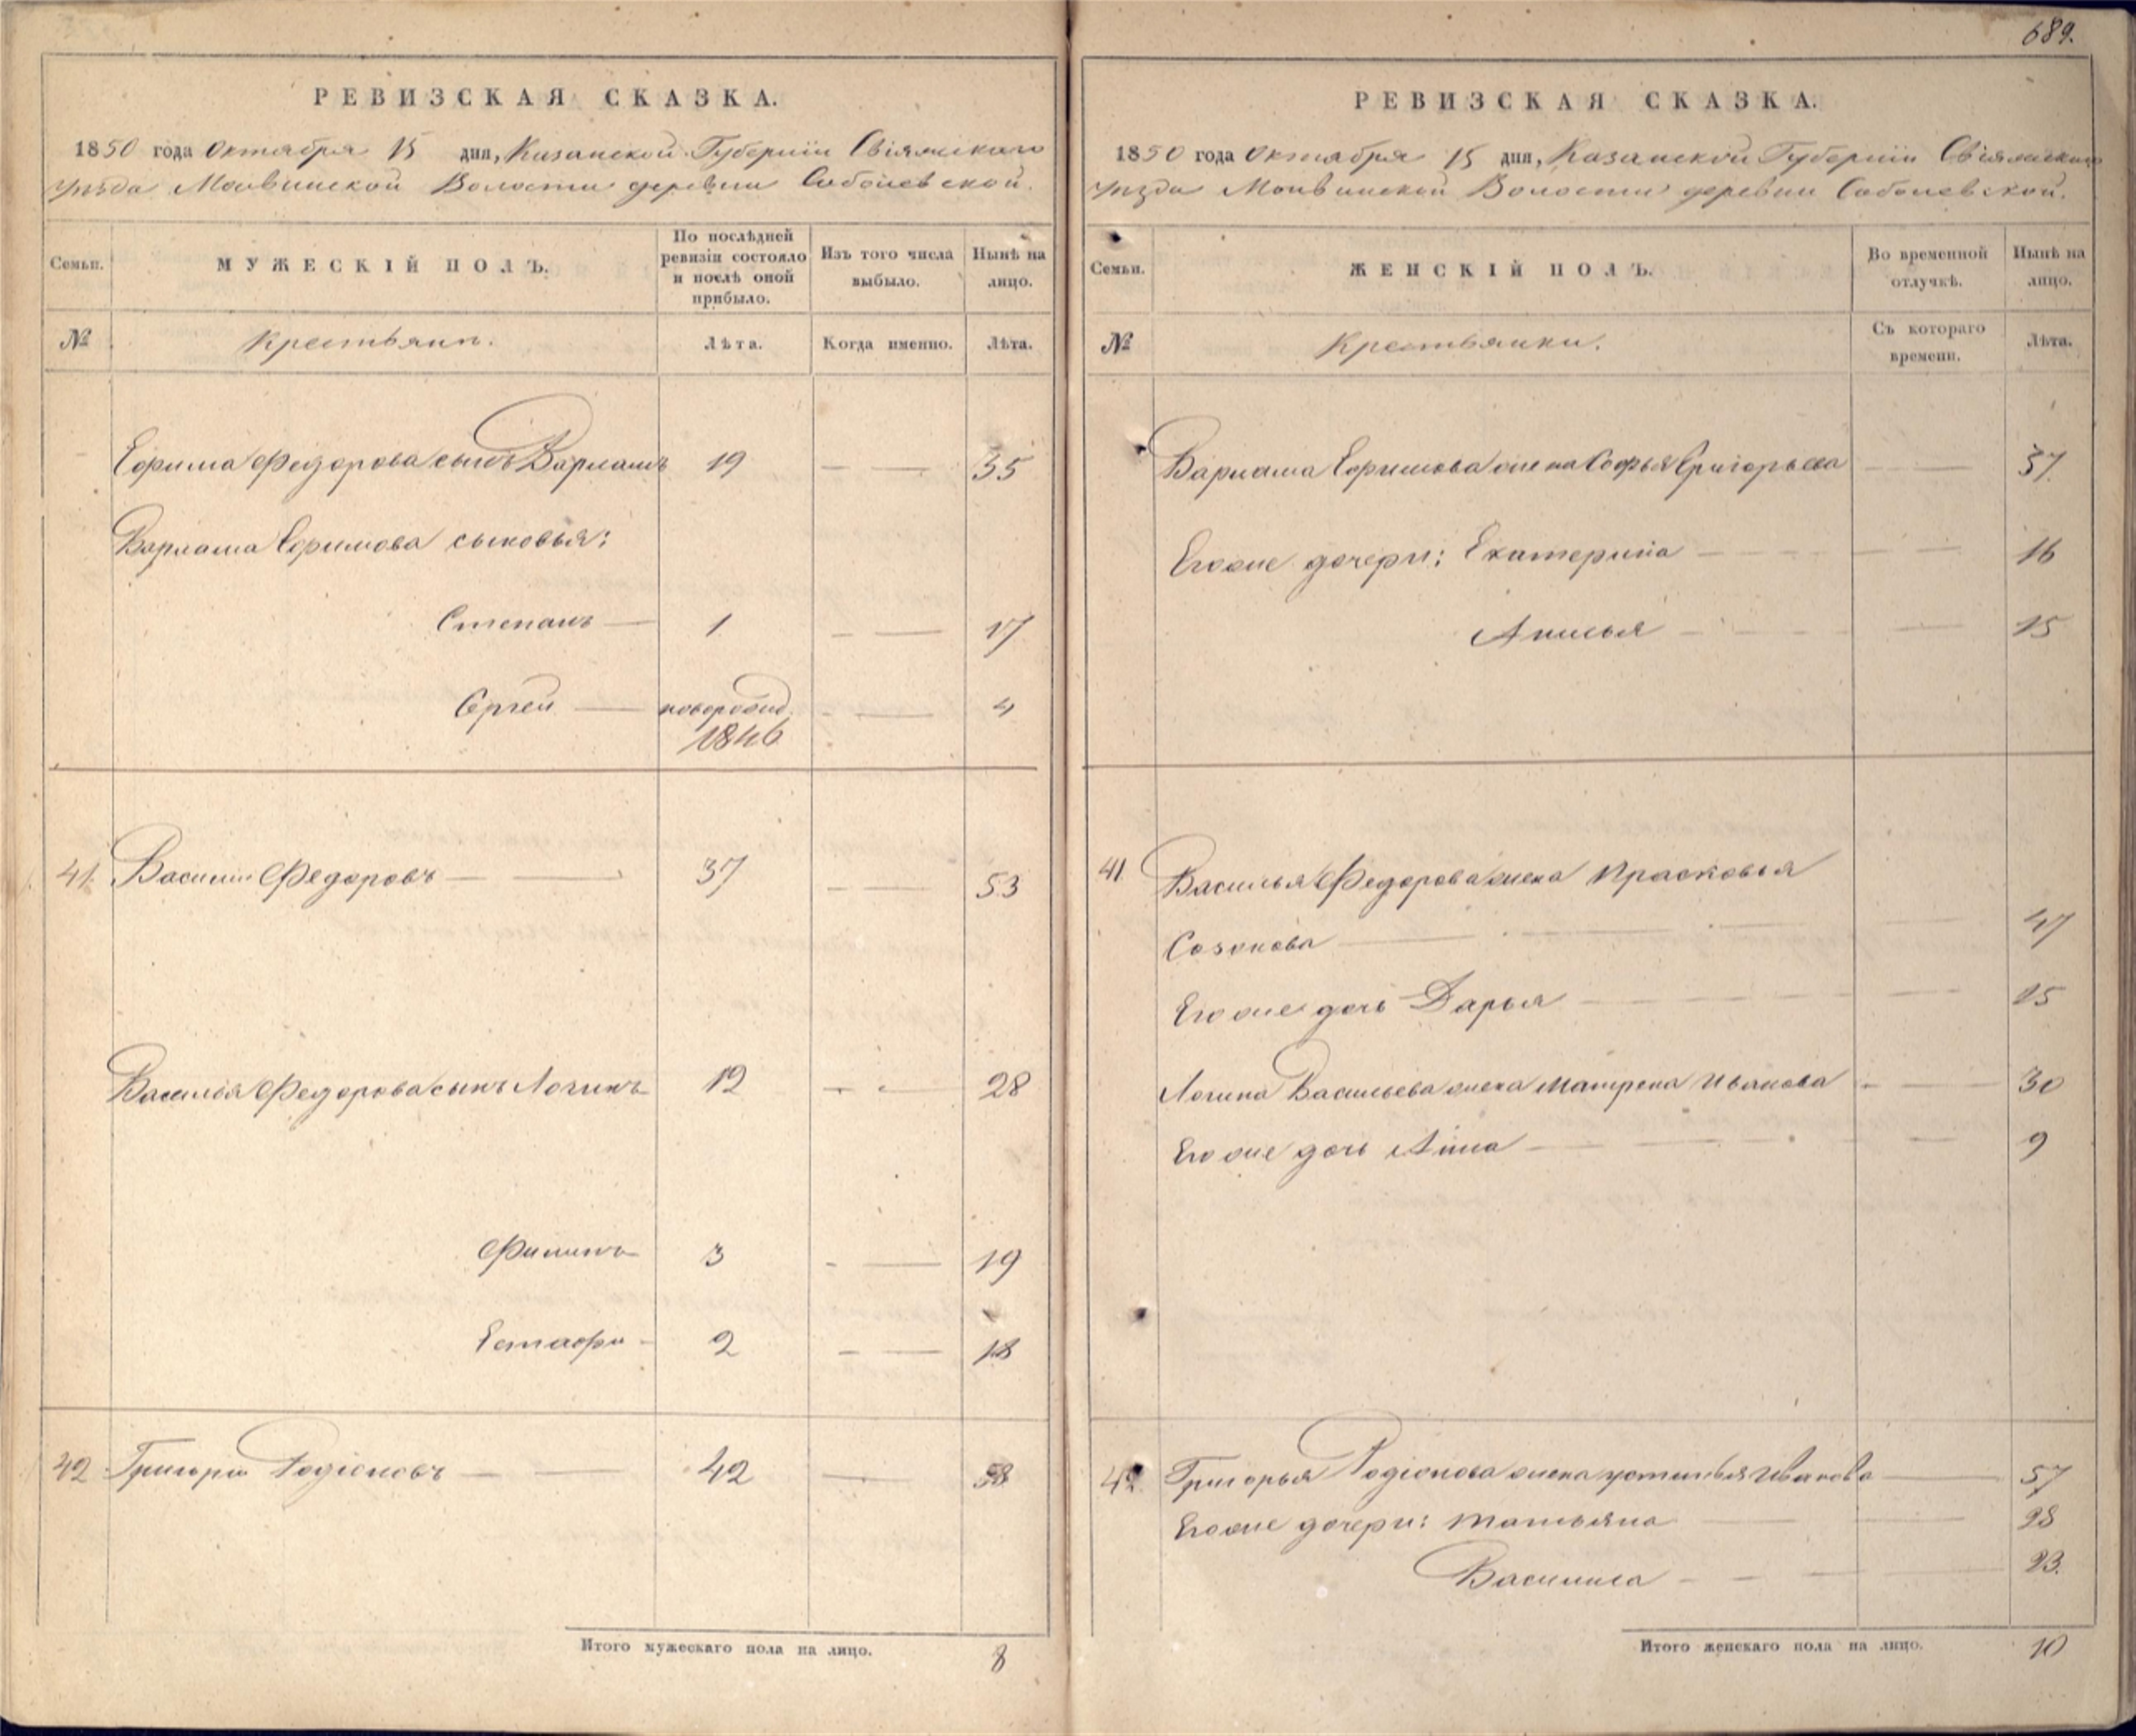 689.
РЕВИЗСКАЯ СКАЗКА.
1850 года Октября 15 дня, Казанской Губерніи Свіяжскаго
Уѣзда Волости деревни Соболевской.
Семьи.
МУЖЕСКІЙ ПОЛЪ.
По послѣдней ревизіи состояло и послѣ оной прибыло.
Изъ того числа выбыло.
Нынѣ на лицо.
№
Крестьянъ.
Лѣта.
Когда именно.
Лѣта.
Ефима Федорова сынъ Варламъ 19 — — 35
Варлама Ефимова сыновья:
Степанъ — 1 — — 17
Сергей — новорожд. — — 4
1846
41 Василий Федоровъ — — 37 — — 53
Василья Федорова сынъ Логинъ 12 — — 28
Филипъ 3 — — 19
Естафи — 2 — — 18
42 Григори Родіоновъ — — 42 — 58
Итого мужескаго пола на лицо. 8
РЕВИЗСКАЯ СКАЗКА.
1850 года Октября 15 дня, Казанской Губерніи Свіяжскаго
Уѣзда Волости деревни Соболевской.
Семьи.
ЖЕНСКІЙ ПОЛЪ.
Во временной отлучкѣ.
Нынѣ на лицо.
№
Крестьянки.
Съ котораго времени.
Лѣта.
Варлама Ефимова жена Софья Григорьева — — 37
Егоже дочери: Екатерина — — — 16
— — — 15
41. Василья Федорова жена Прасковья
Созонова — — — — 47
Егоже дочь Дарья — — — 15
Логина Васильева жена Матрена Иванова — — 30
Егоже дочь Анна — — — 9
42. Григорья Родіонова жена Устинья Иванова — 57
Егоже дочери: Татьяна — — 28
Василиса — — — 23.
Итого женскаго пола на лицо. 10